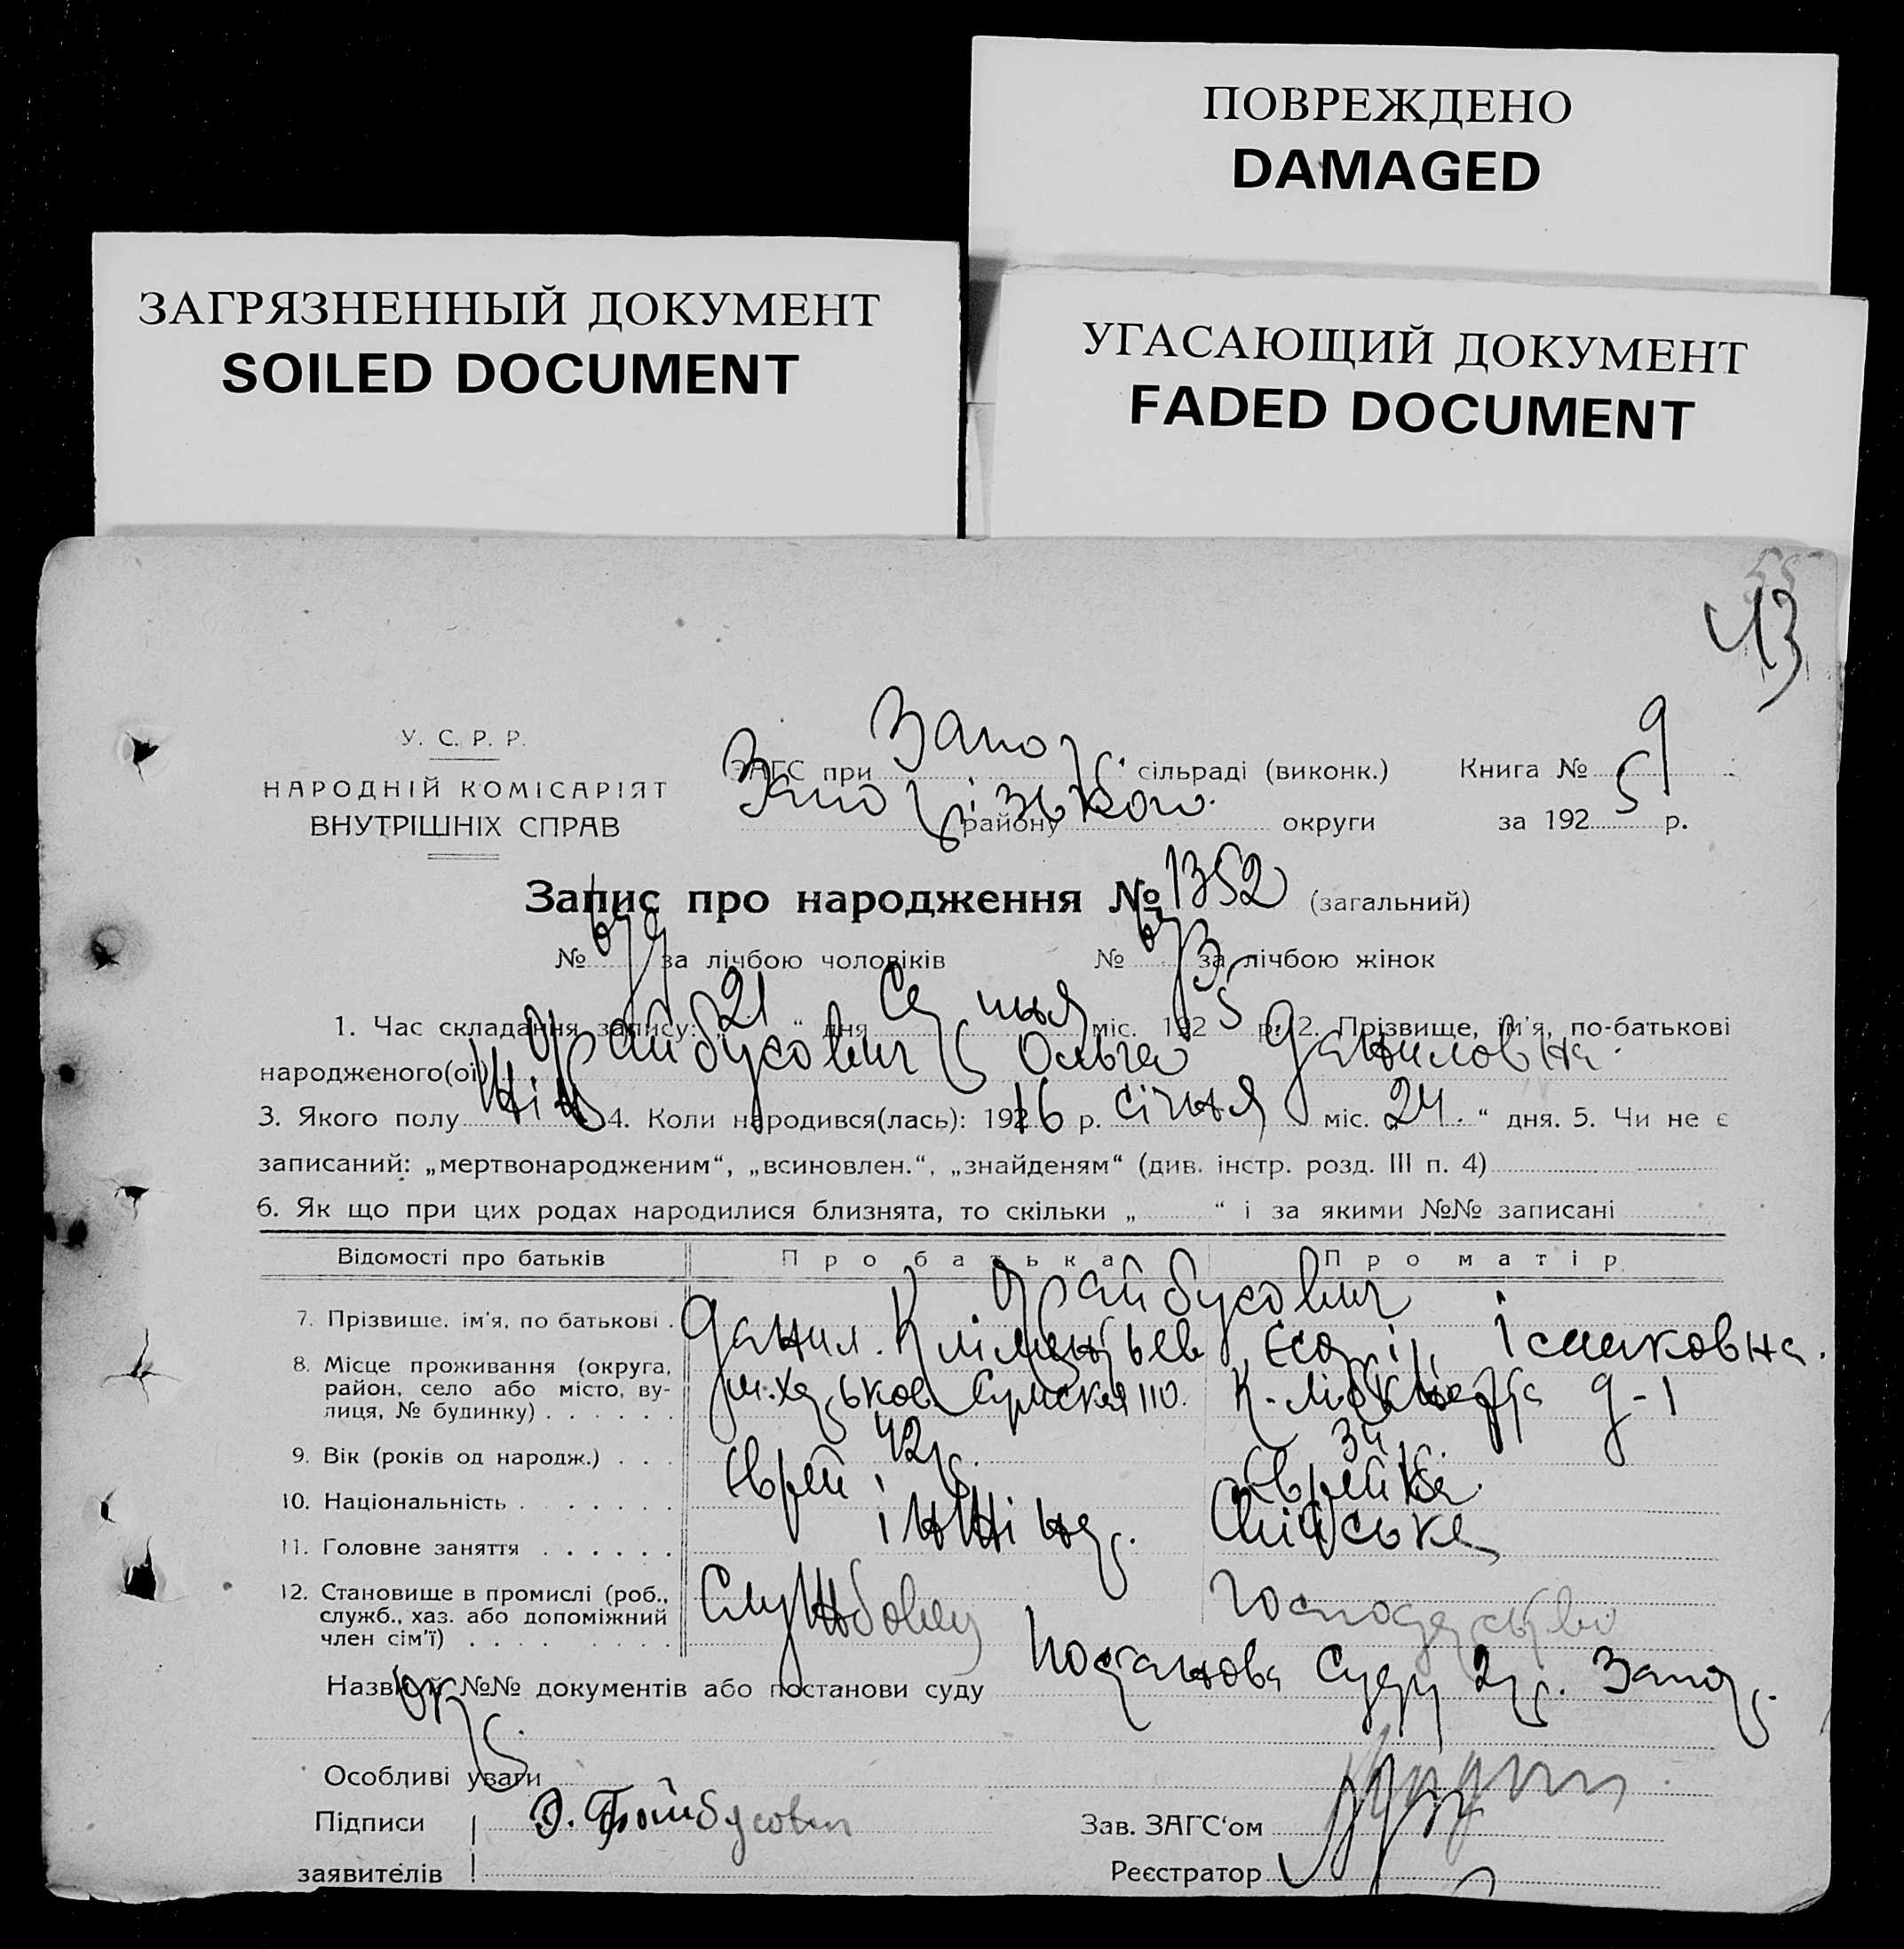 ПОВРЕЖДЕНО
DAMAGED
ЗАГРЯЗНЕННЫЙ ДОКУМЕНТ
SOILED DOCUMENT
УГАСАЮЩИЙ ДОКУМЕНТ
FADED DOCUMENT
43
У. С. Р. Р.
НАРОДНІЙ КОМІСАРІЯТ
ВНУТРІШНІХ СПРАВ
ЗАГС при Запор. сільраді (виконк.) Книга № 9
району округи за 1925 р.
Запис про народження № 1352 (загальний)
№ 679 за лічбою чоловіків № 673 за лічбою жінок
1. Час складання запису: „21“ дня Серпня міс. 1925 р. 2. Прізвище, ім'я, по-батькові
народженого(ої) Фрайбусович Ольга Даниловна
3. Якого полу жін 4. Коли народився(лась): 1916 р. січня міс. „24“ дня. 5. Чи не є
записаний: „мертвонародженим“, „всиновлен.“, „знайденям“ (див. інстр. розд. III п. 4)
6. Як що при цих родах народилися близнята, то скільки „ “ і за якими №№ записані
Відомості про батьків Про батька Про матір
Фрайбусович
7. Прізвище, ім'я, по батькові . Данил. Ісааковна.
8. Місце проживання (округа, район, село або місто, вулиця, № будинку) . . . . . . м. Харьков Сумская 110. К. Лібкнехта д-1
9. Вік (років од народж.) . . . 42р. 34р.
10. Національність . . . . . . Єврей Єврейка.
11. Головне заняття . . . . . . інжінер. Хатське
12. Становище в промислі (роб., служб., хаз. або допоміжний член сім'ї) . . . . . . . . Службовец господарство
Назви й №№ документів або постанови суду Постанова Суду 2р. Запор.
Особливі уваги
Підписи
заявителів
Зав. ЗАГС'ом
Реєстратор